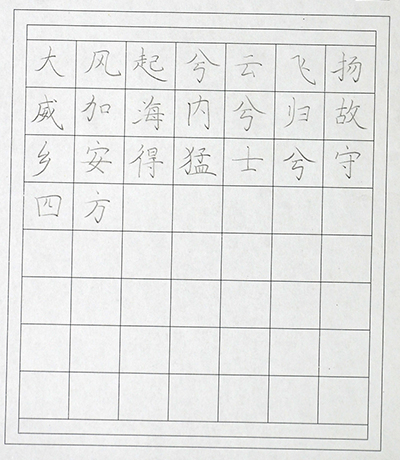 大风起兮云飞扬
威加海内兮归故
乡安得猛士兮守
四方